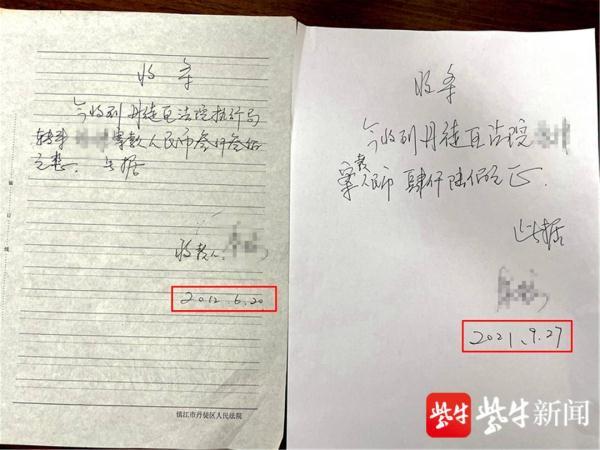 收条
今收到丹徒区法院执行局
转来 案款人民币叁仟叁佰
元整. 此据
收款人
2012.6.20
镇江市丹徒区人民法院
收条
今收到丹徒区法院
案款人民币肆仟陆佰元正.
此据
2021.9.27
紫牛 紫牛新闻